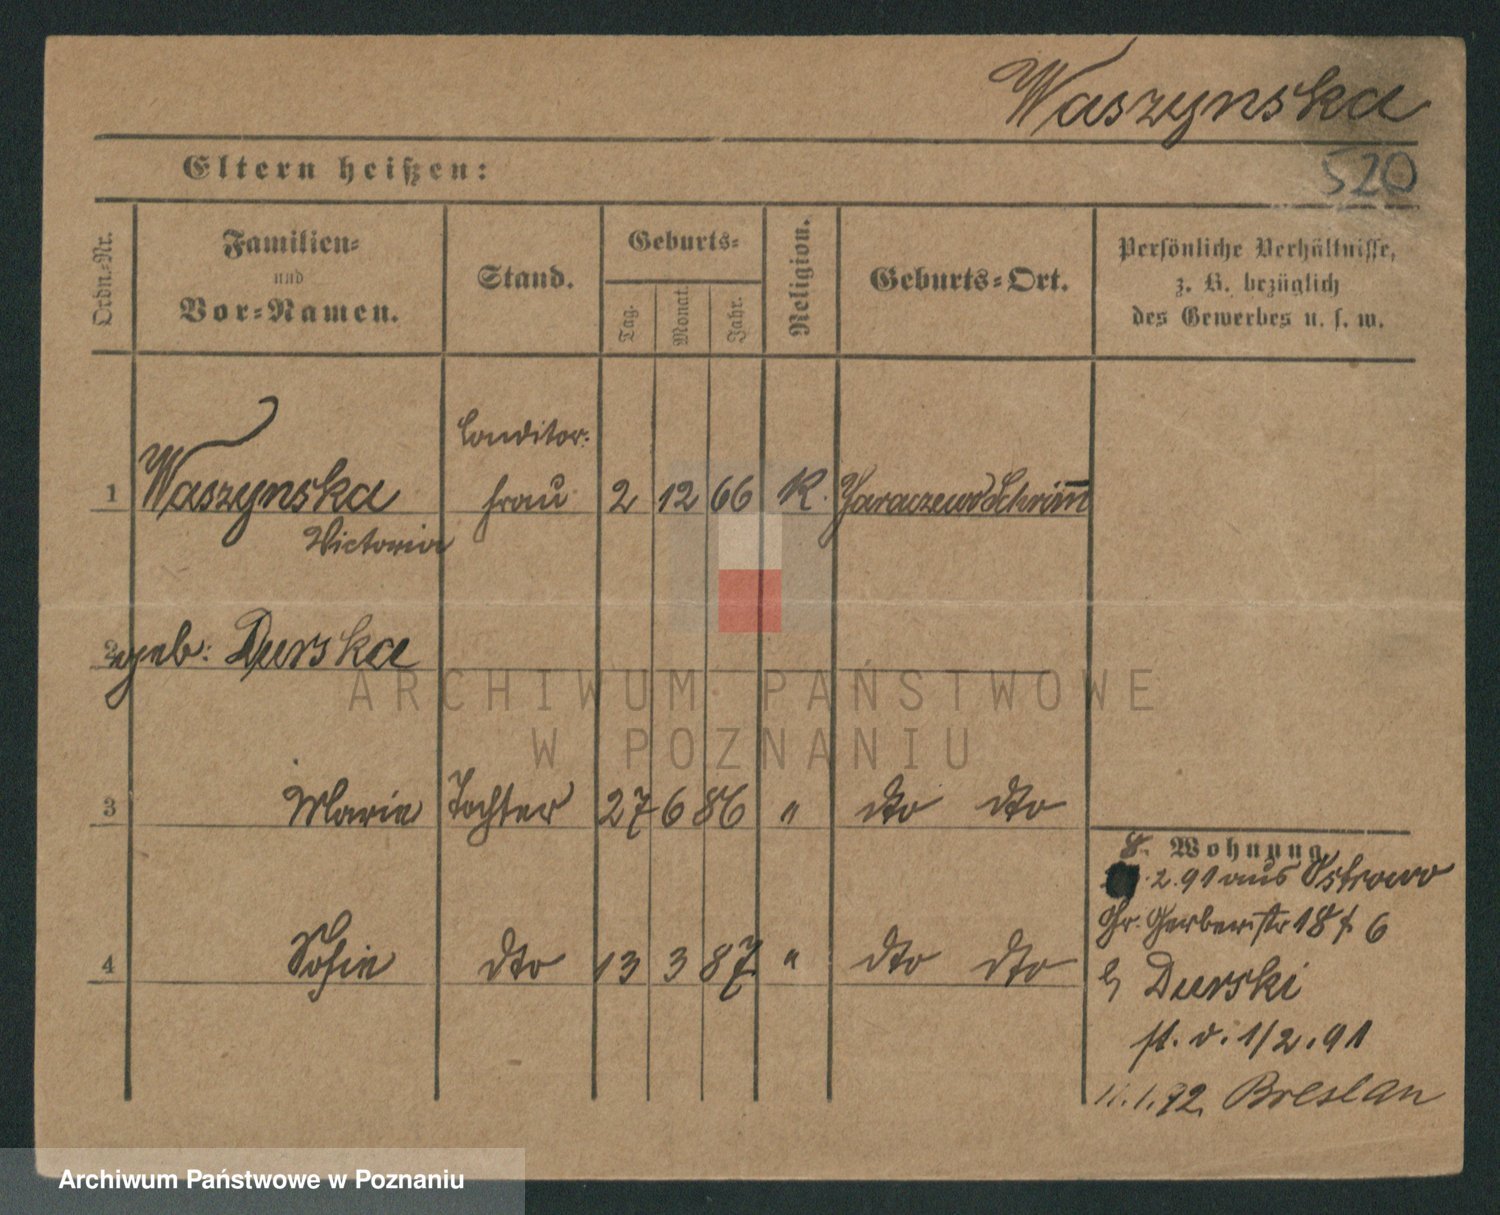 Waszynska
520
Eltern heißen:
Ordn.-Nr.
Familien-
und
Vor-Namen.
Stand.
Geburts-
Tag.
Monat.
Jahr.
Religion.
Geburts-Ort.
Persönliche Verhältnisse,
z. B. bezüglich
des Gewerbes u. s. w.
Conditor-
1 Waszynska frau 2 12 66 K. Jaraczewo Schrimm
Victoria
2 geb: Durska
3 Marie Tochter 27 6 86 " dto dto
4 Sofie dto 13 3 87 " dto dto
8. Wohnung
2.91 aus Ostrowo
Gr. Gerberstr 18 f. 6
b Durski
st. v. 1/2.91
11.1.92. Breslau
ARCHIWUM PAŃSTWOWE
W POZNANIU
Archiwum Państwowe w Poznaniu